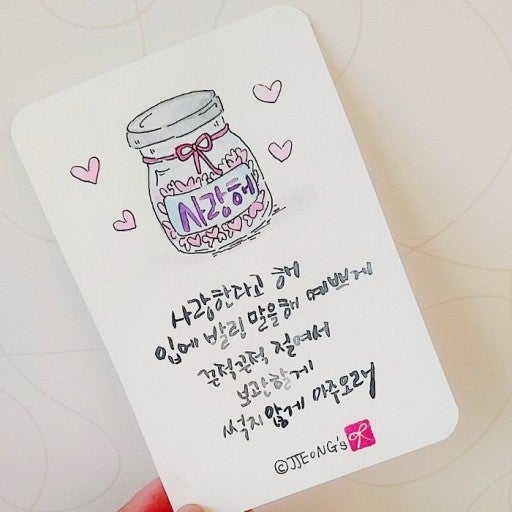 사랑해
사랑한다고 해
입에 발린 말을해 예쁘게
끈적끈적 절여서
보관할게
썩지않게 아주오래
©JJEONG's